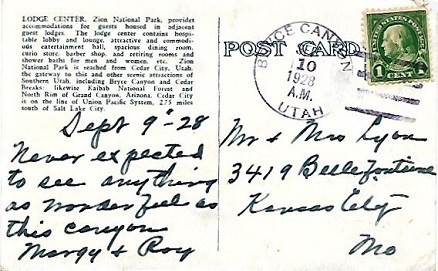 LODGE CENTER, Zion National Park, provides
accommodations for guests housed in adjacent
guest lodges. The lodge center contains hospi-
table lobby and lounge, attractive and commodi-
ous entertainment hall, spacious dining room,
curio store, barber shop, and retiring rooms and
shower baths for men and women, etc. Zion
National Park is reached from Cedar City, Utah,
the gateway to this and other scenic attractions of
Southern Utah, including Bryce Canyon and Cedar
Breaks; likewise Kaibab National Forest and
North Rim of Grand Canyon, Arizona. Cedar City
is on the line of Union Pacific System, 275 miles
south of Salt Lake City.
Sept 9" - 28
Never expected
to see anything
as wonderful as
this canyon
Margy & Roy
POST CARD
BRYCE CANYON
10
1928
A.M.
UTAH
1 CENT 1
Mr & Mrs Lyon
3419 Bellefontaine
Kansas City
Mo